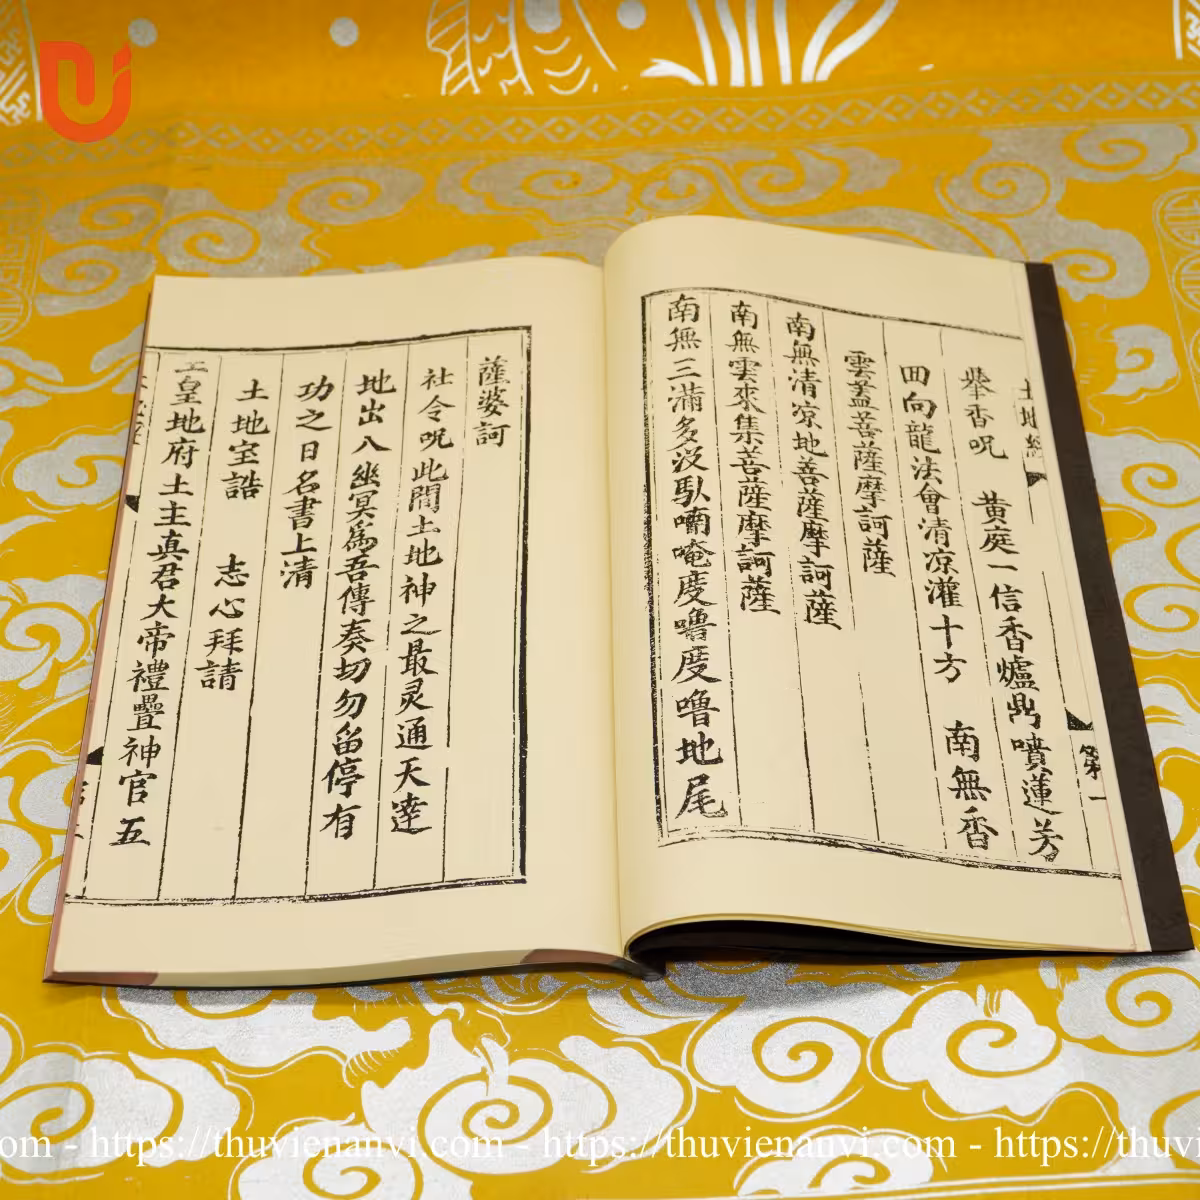 土地經
第一
舉香呪 黄庭一信香爐鼎噴蓮芳
回向龍法會清凉灌十方 南無香
雲蓋菩薩摩訶薩
南無清凉地菩薩摩訶薩
南無雲來集菩薩摩訶薩
南無三滿多没馱喃唵度嚕度嚕地尾
薩婆訶
社令呪此間土地神之最灵通天達
地出入幽冥爲吾傳奏切勿留停有
功之日名書上清
土地宝誥 志心拜請
皇地府土主真君大帝禮疊神官五
https://thuvienanvi.com - https://thuvienanvi.com - https://thuvi